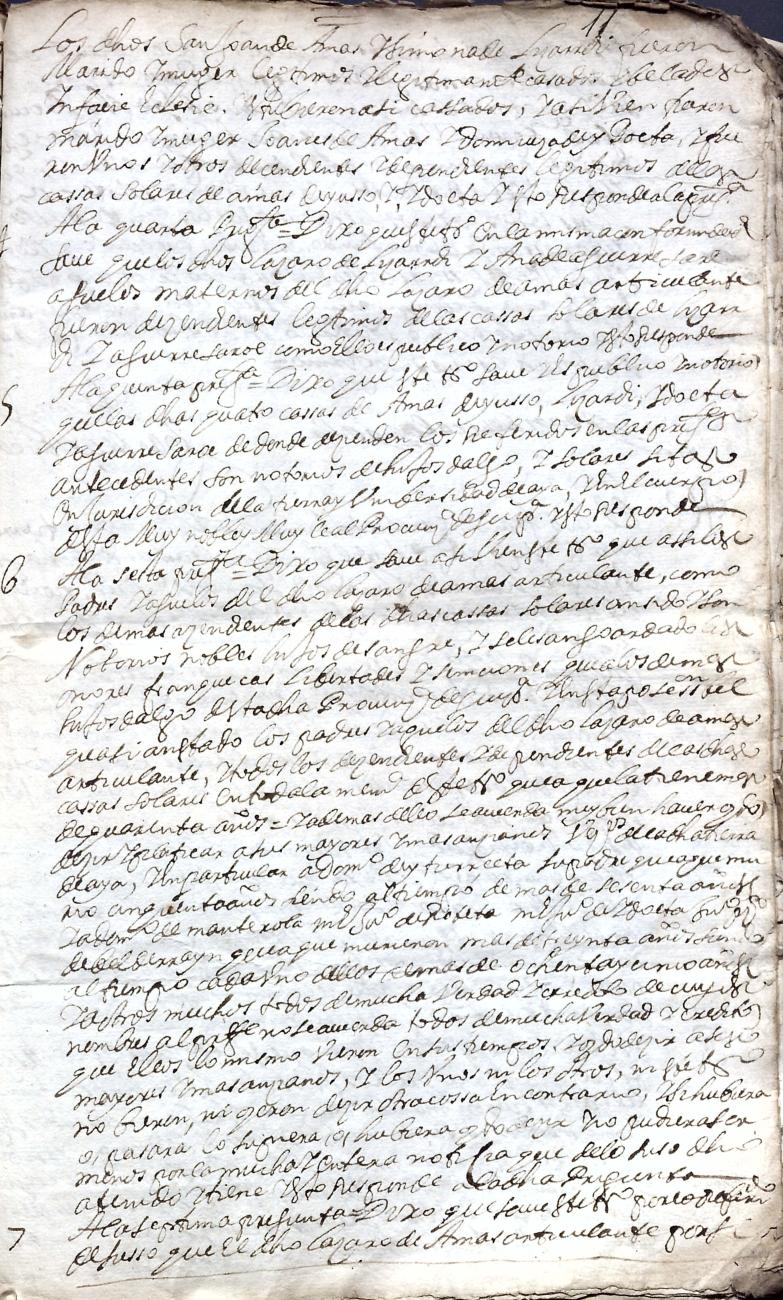 11
Los dhos San Joan de Amas y Simona de Lyardi fueron
Marido y muger legitimos y legitimamente casados y belados
Infacie eclesie. y así cassados, y asi bien fueron
marido y muger Joanes de Amas y Domenja de ydoeta, y fue
ron unos y otros decendientes y dependientes legitimos de las
cassas solares de amas deyusso, y ydoeta y esto Responde a la pregta
4 A la quarta Pregta = Dixo que este tso en la misma conformidad
save que los dhos lazaro de Lyardi y Ana de Aguirresaroe
aguelos maternos del dho lazaro de amas articulante
fueron dependientes legitimos de las cassas solares de lyar
di y aguirresaroe como ello es publico y notorio y esto Responde
5 A la quinta pregta = Dixo que este tso save y es publico y notorio
que las dhas quatro cassas de Amas deyusso, Lyardi, ydoeta
y aguirresaroe de donde dependen los Referidos en las pregtas
antecedentes son notorios de hijos dalgo, y solares sitas
en jurisdicion de la tierra y Universidad de aya, y en el cuerpo
desta Muy noble y Muy leal Provincia de guipa. y esto Responde
6 A la sesta pregta = Dixo que save asi bien este tso que assi los
Padres y aguelos del dho lazaro de amas articulante, como
los demas dependientes de las dhas cassas solares an sido y son
Notorios nobles hijos de sangre, y se les an goardado las
onores franquecas libertades y esenciones que a los demas
hijos dalgo desta dha Provincia de guipa. y en esta posesion
quasi an estado los padres y aguelos del dho lazaro de amas
articulante, y todos los dependientes de las dhas
cassas solares en toda la mema deste tso que a que la tiene mas
de quarenta años = y ademas dello se acuerda muy bien haver oydo
dezir y platicar a sus mayores y mas ancianos vos de la dha tierra
de aya, y en particular a Domo de yturrieta su padre que a que mu
rio cinquenta años siendo al tiempo de mas de sesenta años
y a domo de manterola
de belderrayn que a que murieron mas de treynta años siendo
al tiempo cada uno dellos de mas de ochenta y cinco años
y a otros muchos todos de mucha Verdad y credito de cuyos
nombres al presste no se acuerda todos de mucha Verdad y credito
que ellos lo mismo vieron en sus tiempos, y oydo dezir a sus
mayores y mas ancianos, y los unos ni los otros, ni este tso
no bieron, ni oyeron dezir otra cossa en contrario, y si hubiera
o passara lo supiera o hubiera oydo dezir y no pudiera ser
menos por la mucha y entera noticia que de lo suso dho
a tenido y tiene y esto Responde a la dha Pregunta
7 A la septima pregunta = Dixo que save este tso por lo referido
de susso que el dho lazaro de Amas articulante por si